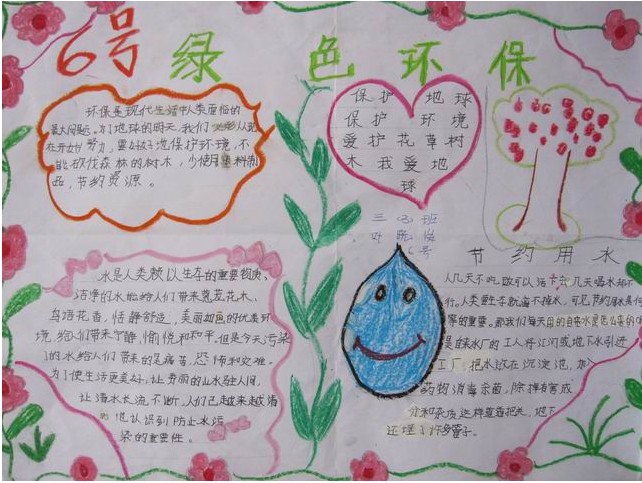 6号 绿色环保
环保是现代生活中人类面临的
最大问题。为了地球的明天,我们
在开始努力,要
地保护环境,不
能砍伐森林的树木,少使用塑料制
品,节约资源。
保护 地球
保护 环境
爱护花草树
木我爱地
球
三(3)班
叶
6号
节约用水
水是人类赖以生存的重要物质、
洁净的水能给人们带来葱茏花木、
鸟语花香,恬静舒适,美丽如画的优美环
境,给人们带来宁静,愉悦和和平,但是今天污染
了的水给人们带来的是痛苦,恐怖和灾难。
为了使生活更美好,让秀丽的山水驻人间,
让清水长流不断,人们已越来越清
地认识到防止水污
染的重要性。
人几天不吃饭可以活
几天喝水却不
行。人类更是
离不
水,可见节约用水是何
等的重要。那我们每天用的自来水是怎么来的
是自来水厂的工人将江河或地下水引进
工厂,把水放在沉淀池,加入
药物消毒杀菌,除掉有害成
分和杂质
地下
还埋了许多管子。